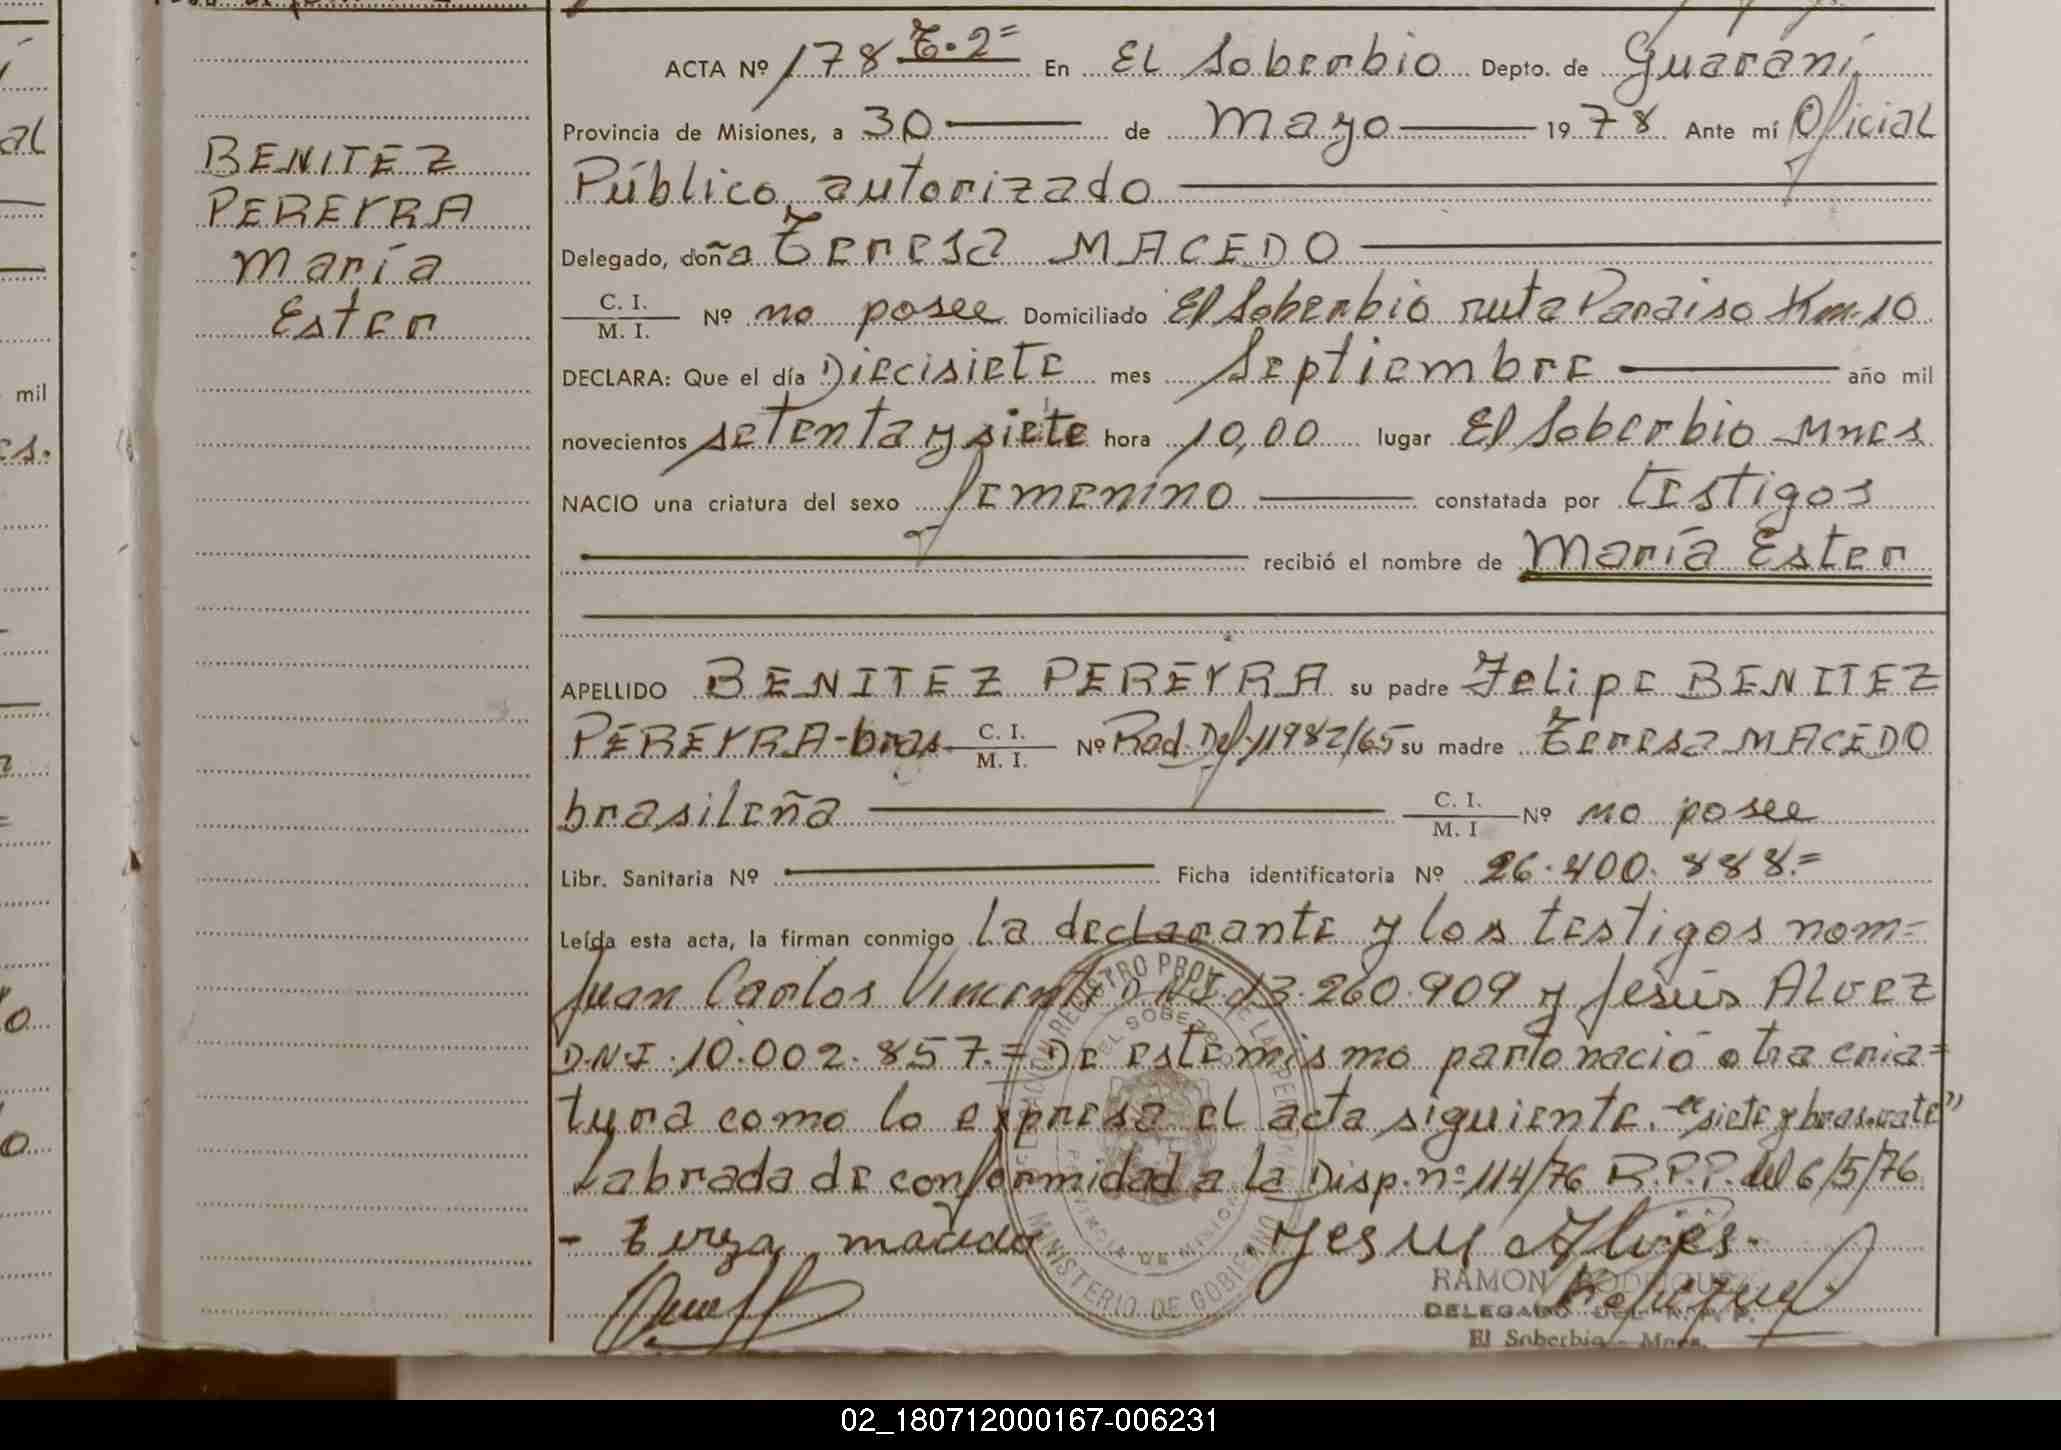 BENITEZ
PEREYRA
María
Ester
ACTA Nº 178 T.2= En El Soberbio Depto. de Guaraní
Provincia de Misiones, a 30 de Mayo 1978 Ante mí Oficial
Público autorizado
Delegado, doña Teresa MACEDO
C. I.
M. I. Nº no posee Domiciliado El Soberbio ruta Paraiso Km-10
DECLARA: Que el día Diecisiete mes Septiembre año mil
novecientos setenta y siete hora 10,00 lugar El Soberbio Mnes
NACIO una criatura del sexo femenino constatada por testigos
recibió el nombre de María Ester
APELLIDO BENITEZ PEREYRA su padre Felipe BENITEZ
PEREYRA-bras. C. I. M. I. Nº Rad. Def. 11982/65 su madre Teresa MACEDO
brasileña C. I. M. I Nº no posee
Libr. Sanitaria Nº Ficha identificatoria Nº 26.400.888.=
Leída esta acta, la firman conmigo la declarante y los testigos nom=
Juan Carlos Vincent D.N.I. 13.260.909 y Jesús Alvez
D.N.I. 10.002.857.= De este mismo parto nació otra cria=
tura como lo expresa el acta siguiente. "siete y bras. vale"
Labrada de conformidad a la Disp. nº 114/76 R.P.P. del 6/5/76
Jesus Alves.
RAMON RODRIGUEZ
DELEGADO DEL R. P. P.
El Soberbio - Mnes.
REGISTRO PROV. DE LAS PERSONAS
EL SOBERBIO
PROVINCIA DE MISIONES
MINISTERIO DE GOBIERNO
mil
02_180712000167-006231